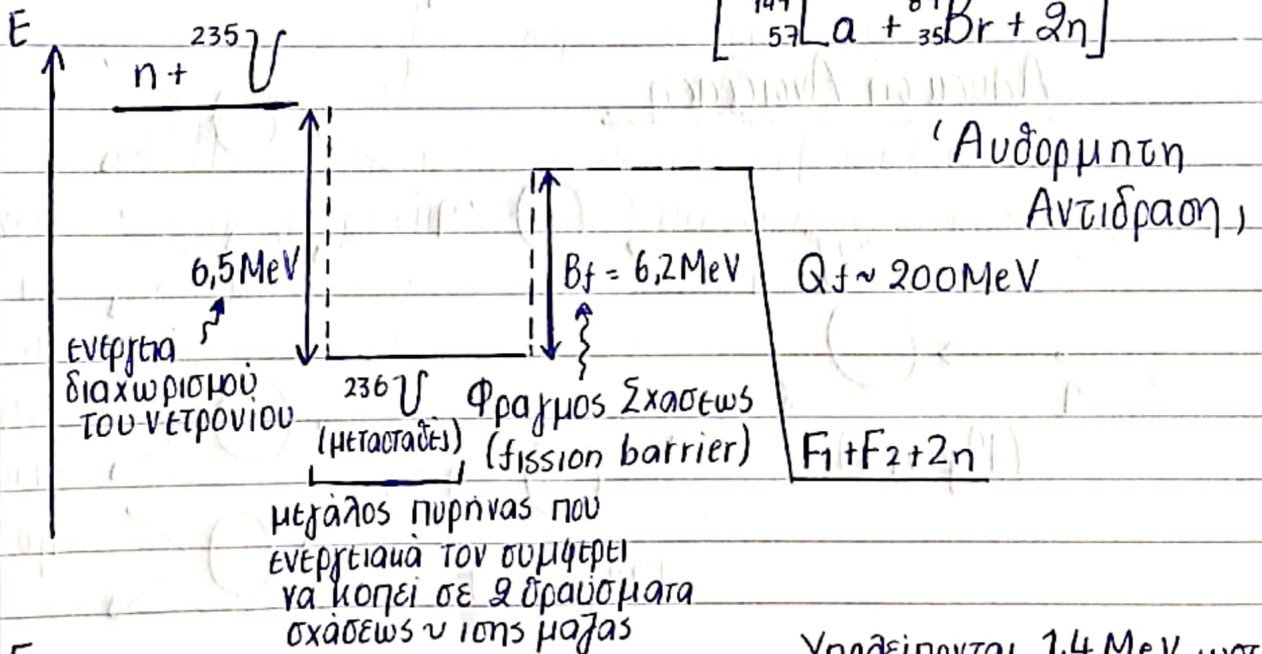 E
n + ²³⁵U
₅₇La + ₃₅Br + 2n]
'Αυθόρμητη
Αντίδραση,
6,5MeV
Bf = 6,2MeV
Qf ~ 200MeV
ενέργεια
διαχωρισμού
του νετρονίου
²³⁶U
(μετασταθές)
Φραγμος Σχάσεως
(fission barrier)
F₁+F₂+2n
μεγάλος πυρήνας που
ενεργειακά τον συμφέρει
να κοπεί σε 2 θραύσματα
σχάσεως ~ ίσης μάζας
Υπολείπονται 1,4 MeV